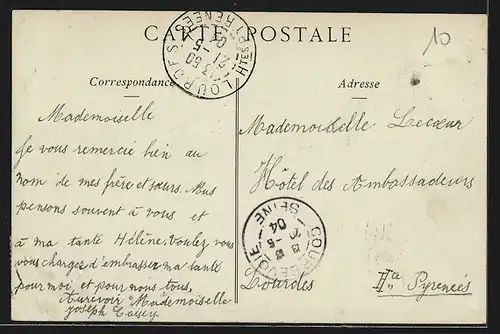 CARTE POSTALE
10
Correspondance
Adresse
LOURDES
13 50
21 - 5
05
HTES PYRENEES
Mademoiselle
Je vous remercie bien au
nom de mes frère et sœurs. Nous
pensons souvent à vous et
à ma tante Hélène. Voulez vous
vous charger d'embrasser ma tante
pour moi, et pour nous tous.
Aurevoir Mademoiselle
Joseph
Mademoiselle Lecœur
Hôtel des Ambassadeurs
Lourdes
Htes Pyrenées
COURBEVOIE
-5
04
SEINE